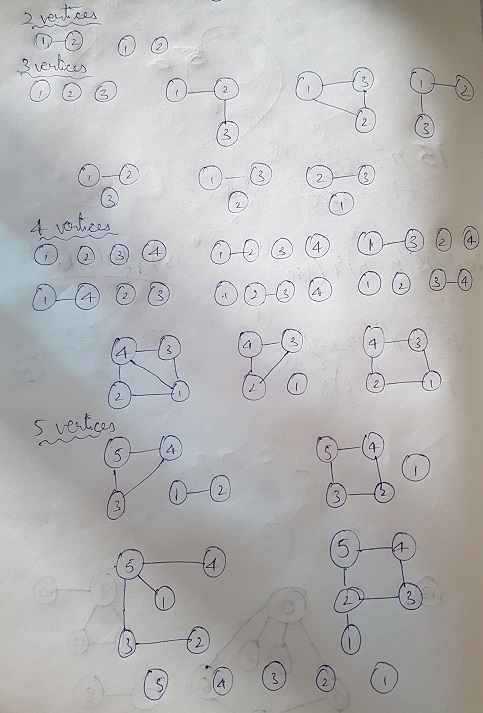 2 vertices
1 2 1 2
3 vertices
1 2 3 1 2 3 1 3 2 1 2 3
1 2 3 1 3 2 2 3 1
4 vertices
1 2 3 4 1 2 3 4 1 3 2 4
1 4 2 3 1 2 3 4 1 2 3 4
4 3 2 1 4 3 2 1 4 3 2 1
5 vertices
5 4 3 1 2 5 4 3 2 1
5 4 1 3 2 5 4 2 3 1
5 4 3 2 1